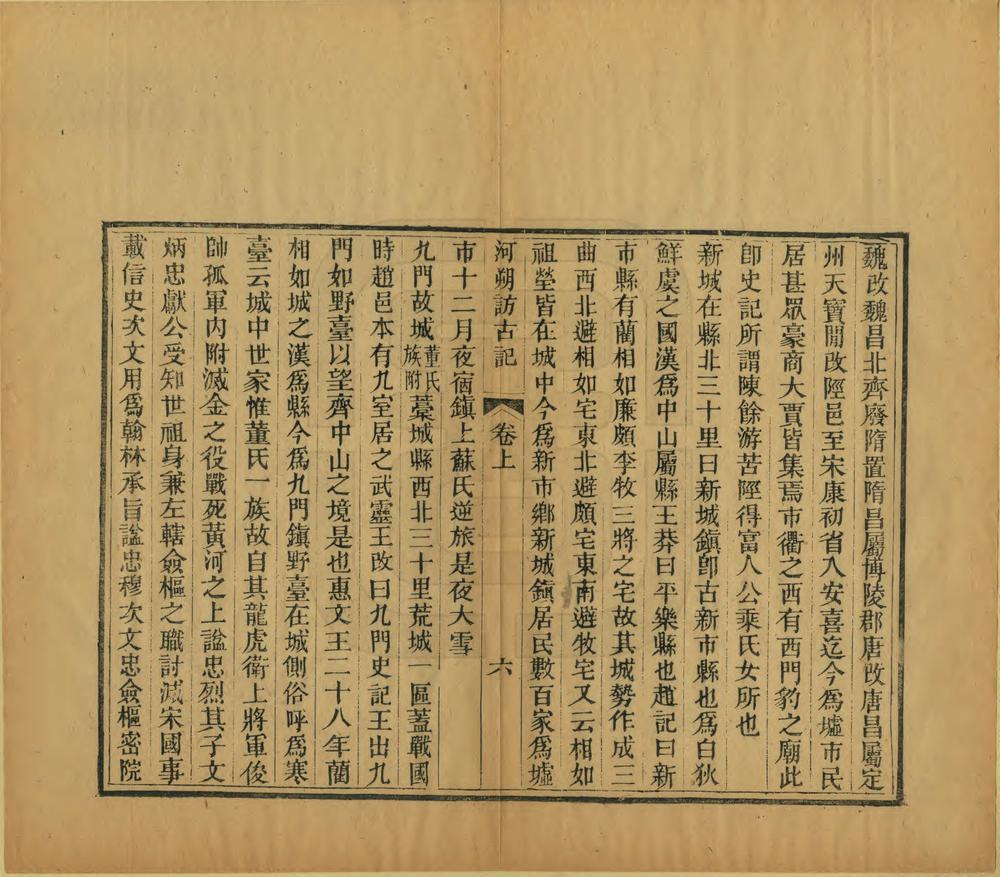 魏改魏昌北齊廢隋置隋昌屬博陵郡唐改唐昌屬定
州天寶閒改陘邑至宋康初省入安喜迄今爲墟市民
居甚眾豪商大賈皆集焉市衢之西有西門豹之廟此
卽史記所謂陳餘游苦陘得富人公乘氏女所也
新城在縣北三十里曰新城鎭卽古新市縣也爲白狄
鮮虞之國漢爲中山屬縣王莽曰平樂縣也趙記曰新
市縣有藺相如廉頗李牧三將之宅故其城勢作成三
曲西北避相如宅東北避頗宅東南避牧宅又云相如
祖塋皆在城中今爲新市鄉新城鎭居民數百家爲墟
河朔訪古記 卷上 六
市十二月夜宿鎭上蘇氏逆旅是夜大雪
九門故城董氏族附藁城縣西北三十里荒城一區蓋戰國
時趙邑本有九室居之武靈王改曰九門史記王出九
門如野臺以望齊中山之境是也惠文王二十八年藺
相如城之漢爲縣今爲九門鎭野臺在城側俗呼爲寒
臺云城中世家惟董氏一族故自其龍虎衛上將軍俊
帥孤軍內附滅金之役戰死黃河之上諡忠烈其子文
炳忠獻公受知世祖身兼左轄僉樞之職討滅宋國事
載信史次文用爲翰林承旨諡忠穆次文忠僉樞密院